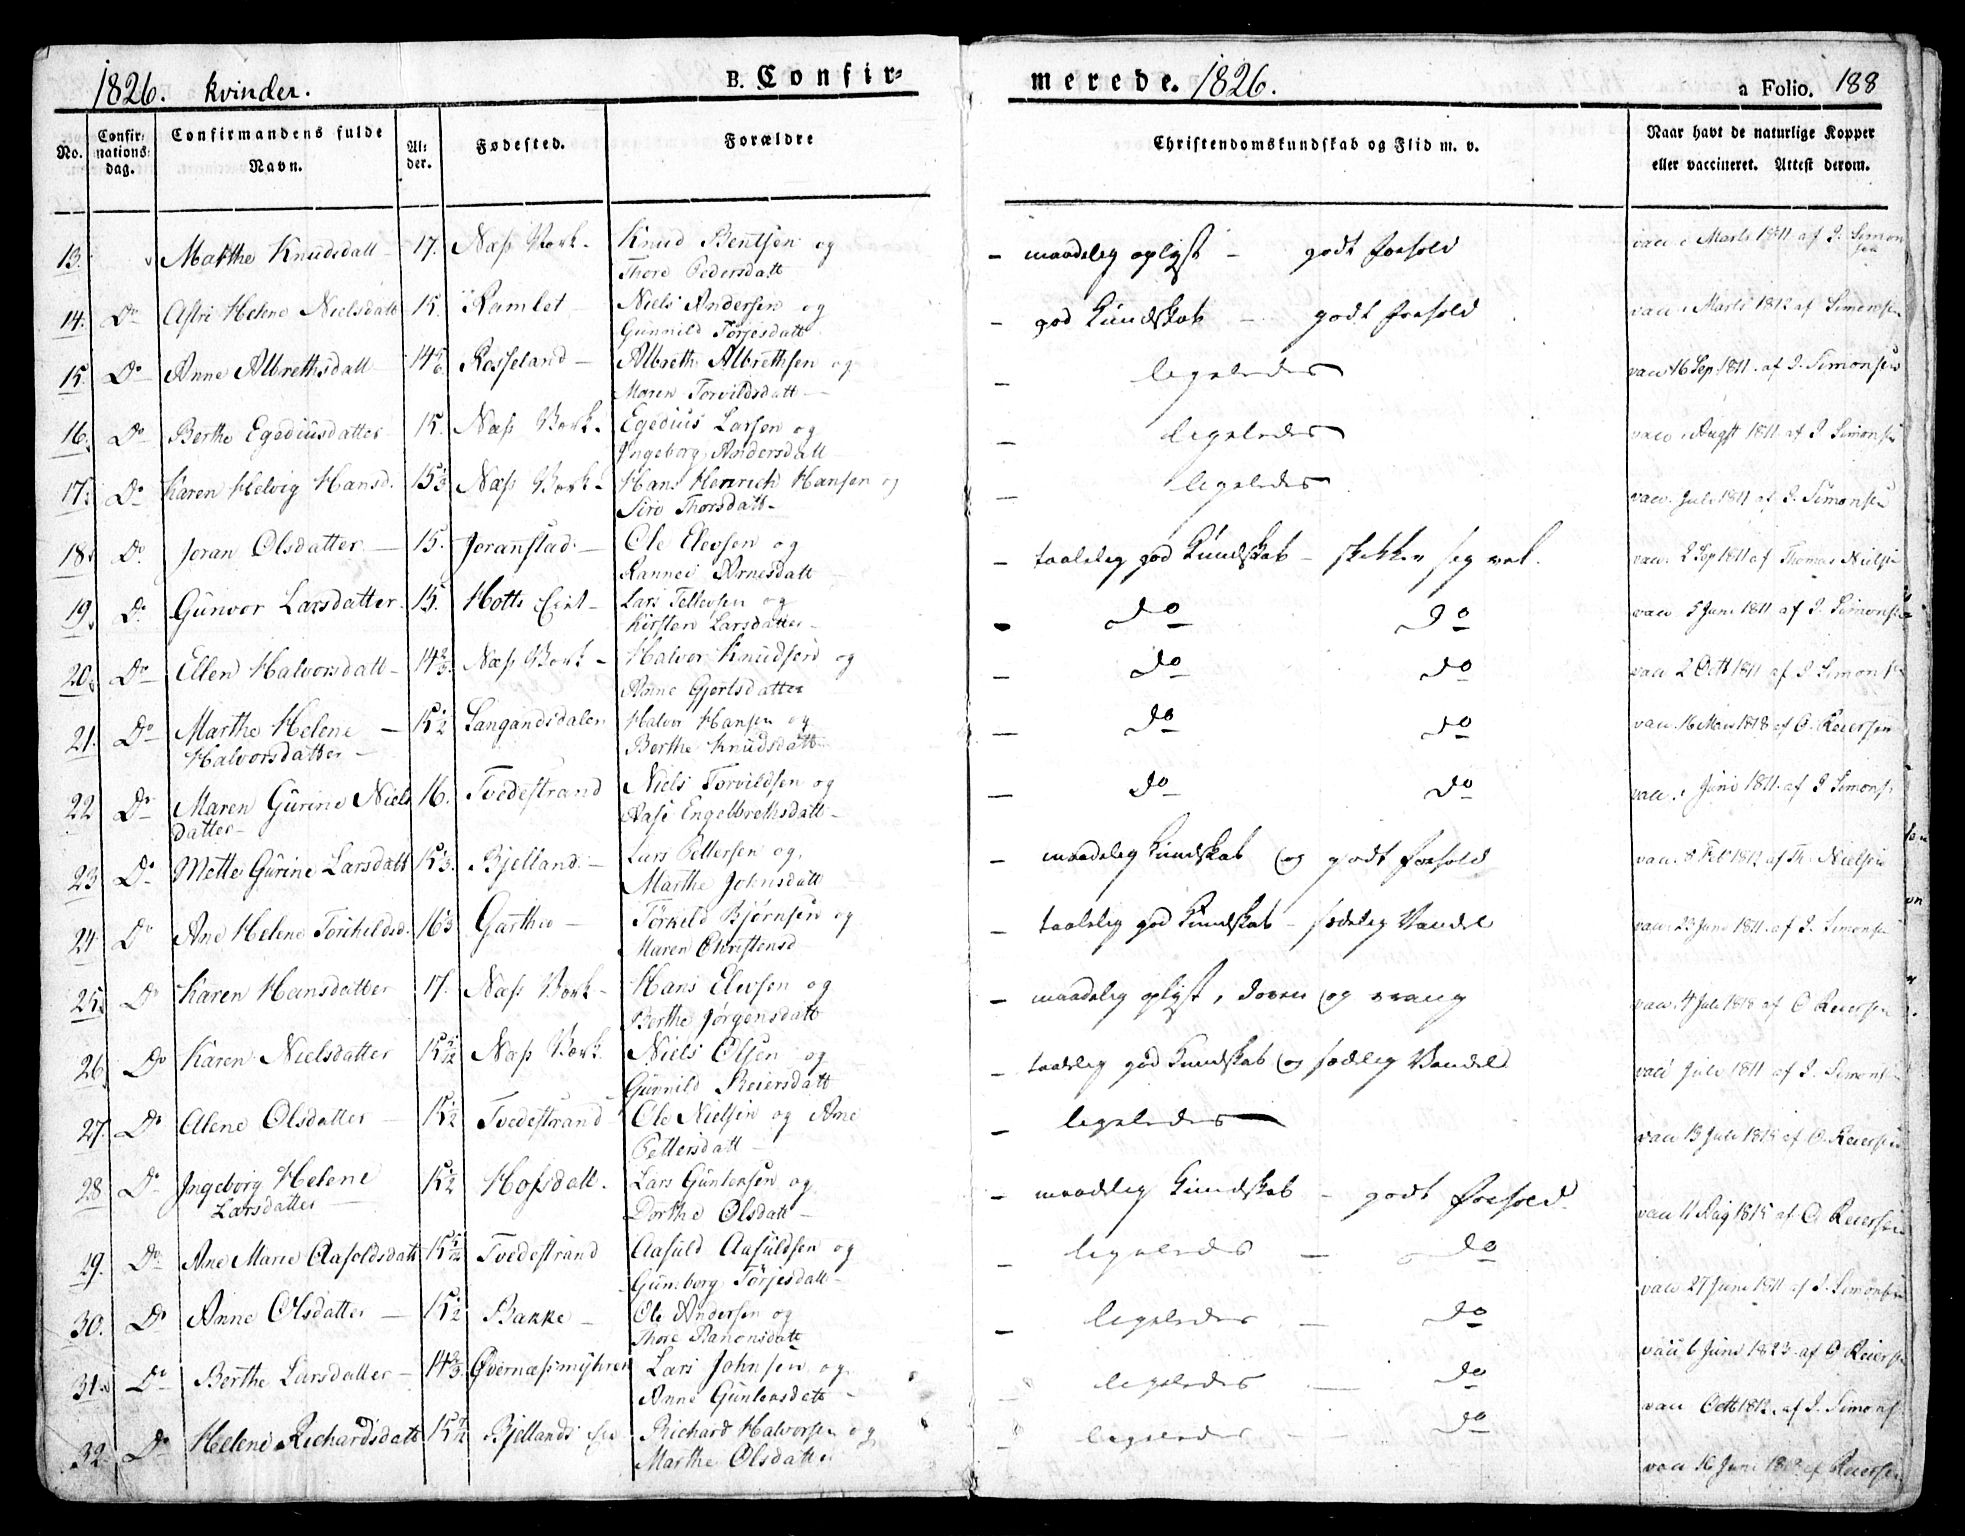 1826. kvinder. B. Confir=
merede. 1826. a Folio. 188
No. Confir: nations: dag. Confirmandens fulde Navn. Al: der. Fødested. Forældre
Christendomskundskab og Flid m. v. Naar havt de naturlige Kopper eller vaccineret. Attest derom.
13. Marthe Knudsdatt 17. Næss Værk Knud Bentsen og
Thore Pedersdatt
maadelig oplyst - godt forhold
vacc i Marts 1811 af J. Simonsen
14. Do Astri Helene Nielsdatt 15. Ramlet Niels Andersen og
Gunnild Tørjesdatt
god Kundskab - godt forhold
vacc i Marts 1812 af Simonsen
15. Do Anne Albrethsdatt 14 Rosseland Albreth Albrethsen og
Maren Torvildsdatt
ligeledes
vacc 16 Sep 1811. af J. Simonsen
16. Do Berthe Egediusdatter 15. Næss Værk Egedius Larsen og
Ingeborg Andersdatt
ligeledes
vacc i Augst 1811 af J Simonsen
17. Do Karen Helvig Hansd. 15⅓ Næss Værk Hans Henrich Hansen og
Siri Thorsdatt
ligeledes
vacc. Juli 1811 af J. Simonsen
18. Do Joran Olsdatter 15. Joranstad Ole Elevsen og
Rannei Arnesdatt
taalelig god Kundskab - skikker sig vel.
vacc 2 Sep 1811 af Thomas Nielsen
19. Do Gunvor Larsdatter 15. Holts Lars Tellevsen og
Kirsten Larsdatter
do do
vacc 5 Juni 1811 af J. Simonsen
20. Do Ellen Halvorsdatt 14⅔ Næss Værk Halvor Knudsen og
Anne Gjertsdatter
do do
vacc 2 Octb 1811 af J Simonsen
21. Do Marthe Helene 15½ Sangandsdalen Halvor Hansen og
Halvorsdatter Berthe Knudsdatt
do do
vacc 16 1818 af O. Reiersen
22 Do Maren Gurine Niels 16. Tvedestrand Niels Torvildsen og
datter Aase Engelbrethsdatt
do do
vacc. i Juni 1811. af J Simons
23 Do Mette Gurine Larsdatt 15⅓. Bjelland Lars Pettersen og
Marthe Johnsdatt
maadelig Kundskab og godt forhold
vacc. 8 Feb 1812 af Th. Nielsen
24 Do Ane Helene Torkildsd. 16⅓ Garthe Torkild Bjørnsen og
Maren Christensd
taalelig god Kundskab - sædelig Vandel
vacc 23 Juni 1811. af J. Simonsen
25. Do Karen Hansdatter 17. Næss Værk Hans Elevsen og
Berthe Jørgensdatt
maadelig oplyst, doven og vrang
vacc. 4 Juli 1818 af O Reiersen
26. Do Karen Nielsdatter 15 Næss Værk Niels Olsen og
Gunnild Reiersdatt
taalelig god Kundskab og sædelig Vandel
vacc Juli 1811 af J. Simonsen
27. Do Alene Olsdatter 15½ Tvedestrand Ole Nielsen og Ane
Pettersdatt
ligeledes
vacc 13 Juli 1815 af O. Reiersen
28 Do Ingeborg Helene 15½ Hofsdatt. Lars Guntersen og
Larsdatter Dorthe Olsdatt
maadelig Kundskab - godt forhold.
vacc 11 Aug 1815 af O. Reiersen
29. Do Ane Marie Aasoldsdatt 15 Tvedestrand Aasuld Aasuldsen og
Gunborg Tørjesdatt
ligeledes - do
vacc 27 Juni 1811 af J. Simonsen
30. Do Anne Olsdatter 15½ Bakke Ole Andersen og
Thore Aanonsdatt
ligeledes - do
vacc 6 Juni 1823 af O Reiersen
31. Do Berthe Larsdatter 14⅔ Qvernæssmyhren Lars Johnsen og
Anne Guntersdatt
ligeledes - do
vacc Octb 1812. af J. Simons
32. Do Helene Richardsdatt 15 Bjellands Richard Halvorsen og
Marthe Olsdatter
ligeledes - do
vacc 16 Juni af Reiersen